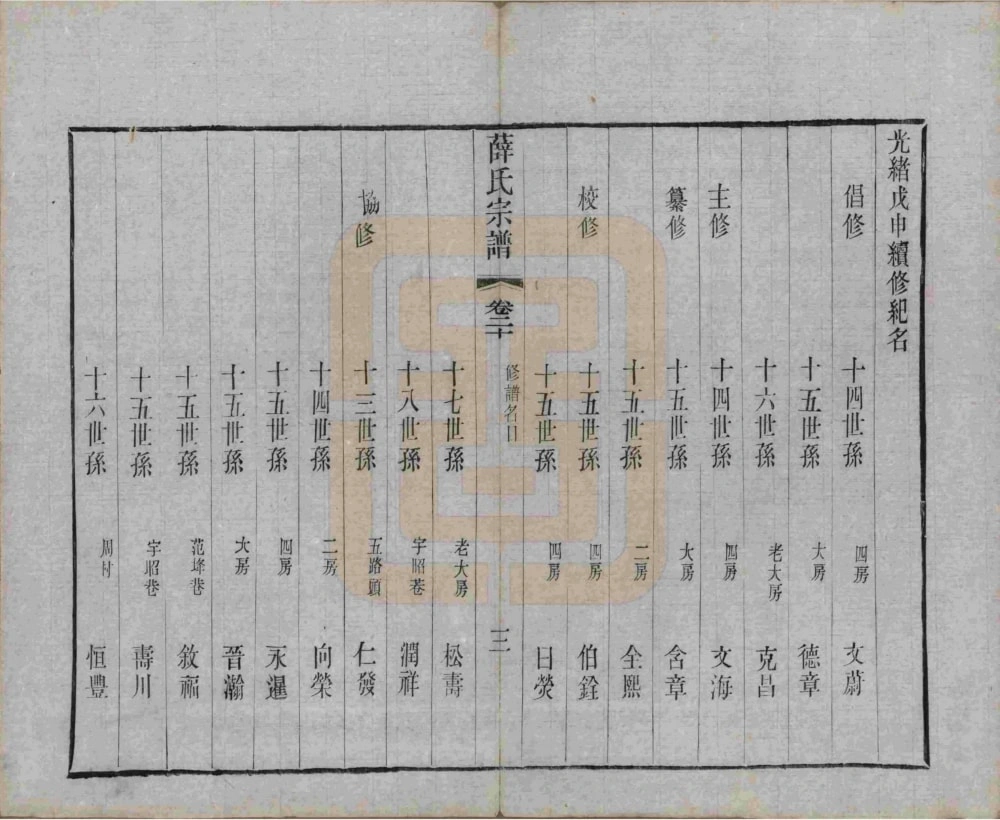 光緒戊申續修紀名
倡修 十四世孫 四房 文蔚
十五世孫 大房 德章
十六世孫 老大房 克昌
主修 十四世孫 四房 文海
纂修 十五世孫 大房 含章
十五世孫 二房 全熙
校修 十五世孫 四房 伯銓
十五世孫 四房 日熒
薛氏宗譜 卷二十 修譜名目 三
十七世孫 老大房 松壽
十八世孫 宇昭巷 潤祥
協修 十三世孫 五路頭 仁發
十四世孫 二房 向榮
十五世孫 四房 永暹
十五世孫 大房 晉瀚
十五世孫 范埄巷 敘福
十五世孫 宇昭巷 壽川
十六世孫 周村 恒豐